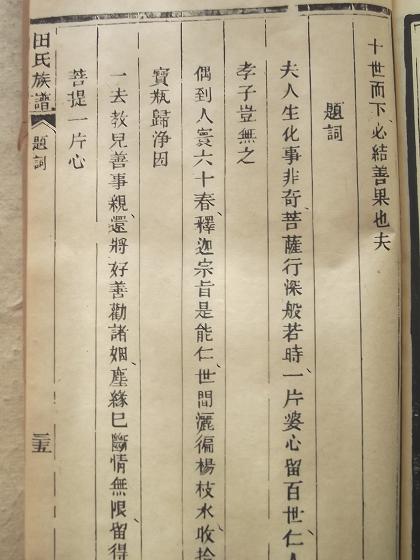 十世而下必結善果也夫
題詞
夫人生化事非奇菩薩行深般若時一片婆心留百世仁人
孝子豈無之
偶到人寰六十春釋迦宗旨是能仁世間灑徧楊枝水收拾
寶瓶歸淨因
一去教兒善事親還將好善勸諸姻塵緣已斷情無限留得
菩提一片心
田氏族譜
題詞
三五